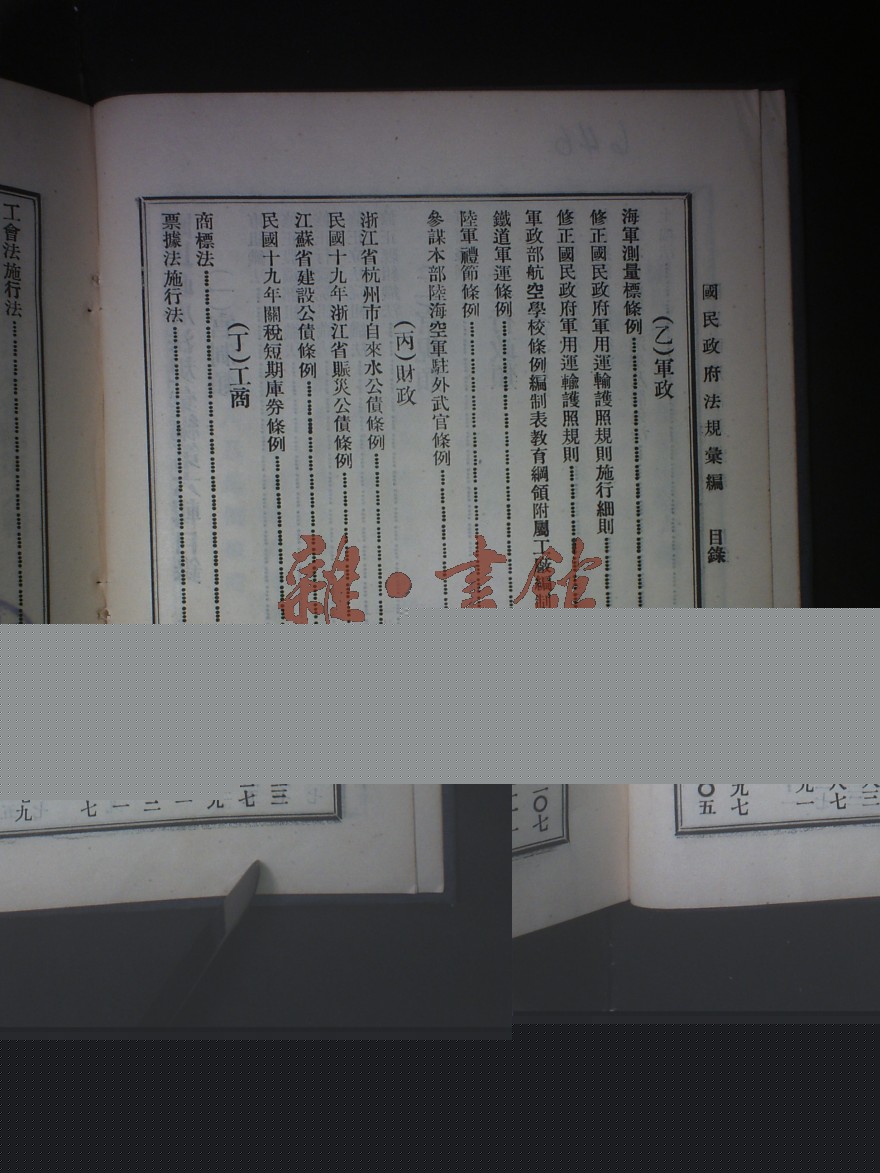 國民政府法規彙編　目錄
(乙)軍政
海軍測量標條例
修正國民政府軍用運輸護照規則施行細則
修正國民政府軍用運輸護照規則
軍政部航空學校條例編制表教育綱領附屬工廠編制
鐵道軍運條例
陸軍禮節條例
參謀本部陸海空軍駐外武官條例
(丙)財政
浙江省杭州市自來水公債條例
民國十九年浙江省賑災公債條例
江蘇省建設公債條例
民國十九年關稅短期庫券條例
(丁)工商
商標法
票據法施行法
工會法施行法
雜·書館